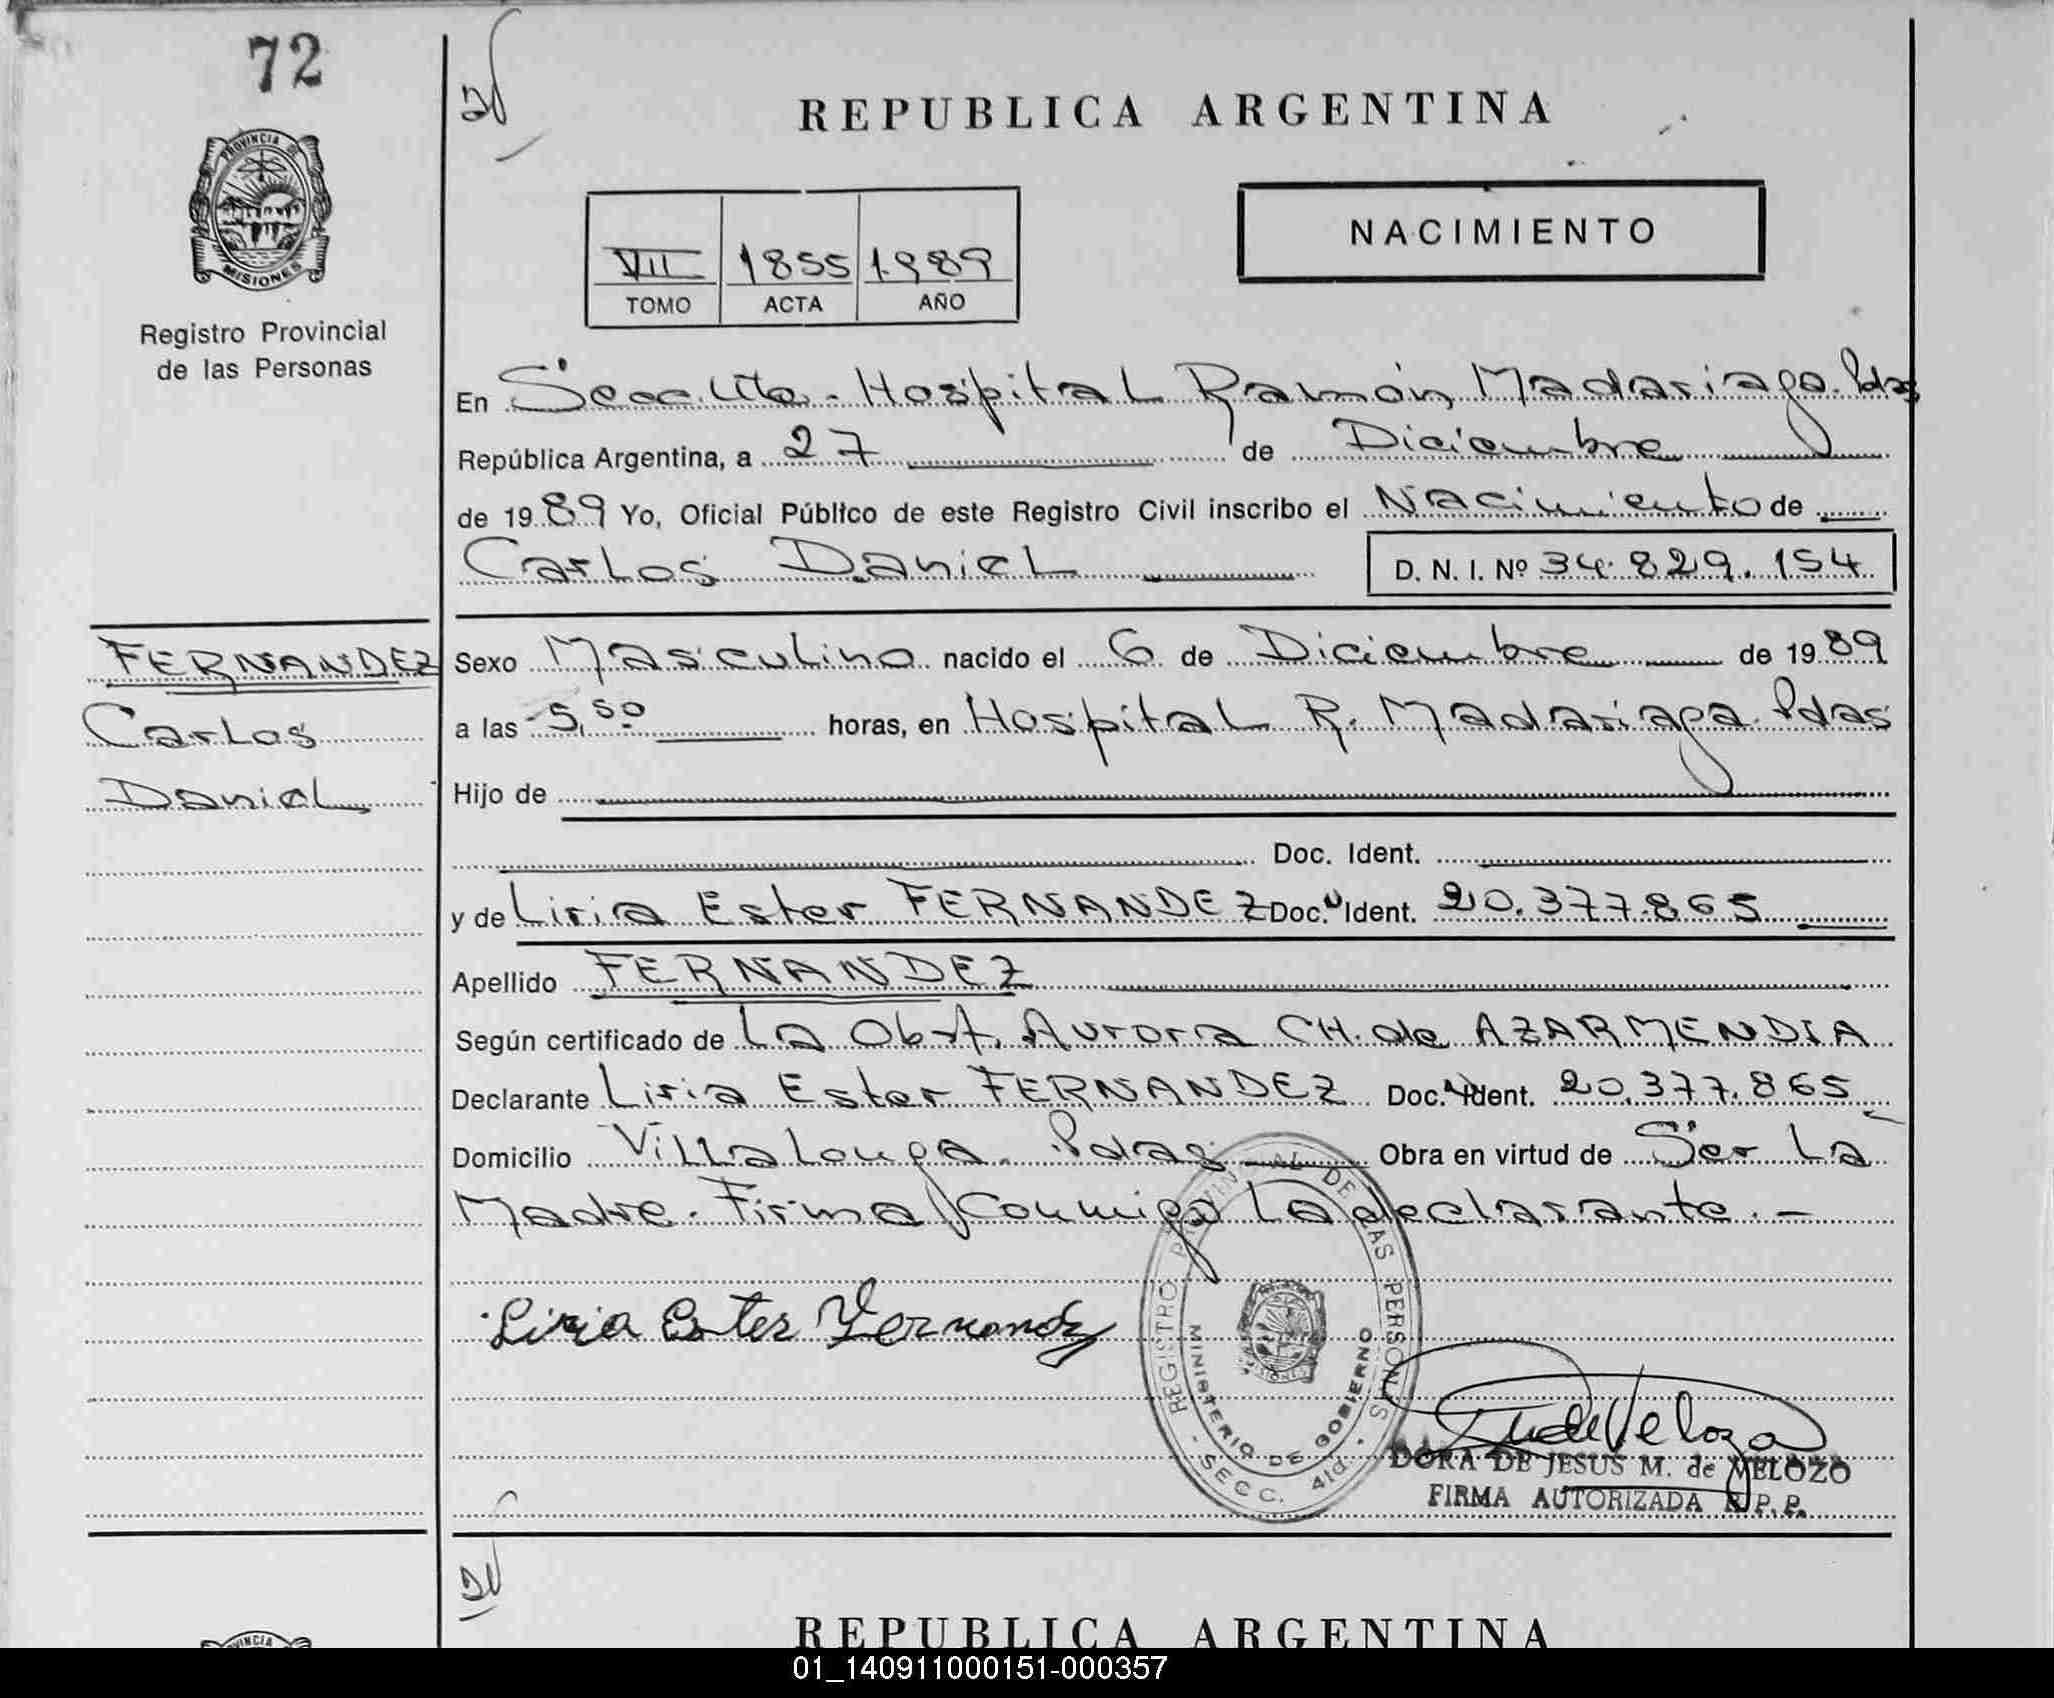 72
PROVINCIA DE
MISIONES
Registro Provincial
de las Personas
REPUBLICA ARGENTINA
NACIMIENTO
VII 1855 1989
TOMO ACTA AÑO
En Secc. 4ta. Hospital Ramón Madariaga. Pdas
República Argentina, a 27 de Diciembre
de 1989 Yo, Oficial Público de este Registro Civil inscribo el Nacimiento de
Carlos Daniel D. N. I. Nº 34.829.154
FERNANDEZ
Carlos
Daniel
Sexo Masculino nacido el 6 de Diciembre de 1989
a las 5,50 horas, en Hospital R. Madariaga. Pdas
Hijo de
Doc. Ident.
y de Liria Ester FERNANDEZ Doc. Ident. 20.377.865
Apellido FERNANDEZ
Según certificado de La Obst. Aurora CH. de AZARMENDIA
Declarante Liria Ester FERNANDEZ Doc. Ident. 20.377.865
Domicilio Villalonga. Pdas Obra en virtud de Ser La
Madre. Firma Conmigo La declarante. -
Liria Ester Fernandez
REGISTRO PROVINCIAL DE LAS PERSONAS
MINISTERIO DE GOBIERNO
- SECC. 4ta. -
de Velozo
DORA DE JESUS M. de VELOZO
FIRMA AUTORIZADA R.P.P.
PROVINCIA
REPUBLICA ARGENTINA
01_140911000151-000357